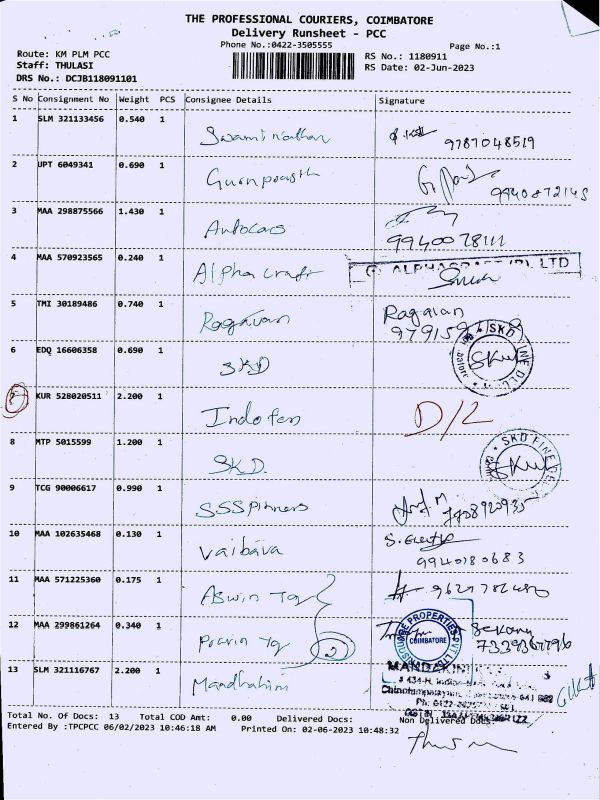 THE PROFESSIONAL COURIERS, COIMBATORE
Delivery Runsheet - PCC
Phone No.:0422-3505555
Page No.:1
Route: KM PLM PCC
Staff: THULASI
DRS No.: DCJB118091101
RS No.: 1180911
RS Date: 02-Jun-2023
S No Consignment No Weight PCS Consignee Details Signature
1 SLM 321133456 0.540 1
Swaminathan 9787048519
2 UPT 6049341 0.690 1
9940872145
3 MAA 298875566 1.430 1
Autocars
9940078111
4 MAA 570923565 0.240 1
Alpha craft
5 TMI 30189486 0.740 1
Ragavan Ragavan
6 EDQ 16606358 0.690 1
SKD
7 KUR 528020511 2.200 1
Indofen D/L
8 MTP 5015599 1.200 1
SKD. SKD FINE
9 TCG 90006617 0.990 1
SSSpinners
10 MAA 102635468 0.130 1
Vaibava
9940180683
11 MAA 571225360 0.175 1
Aswin Tq
12 MAA 299861264 0.340 1
Pravin Tq
COIMBATORE
13 SLM 321116767 2.200 1
Total No. Of Docs: 13 Total COD Amt: 0.00 Delivered Docs: Non Delivered Docs:
Entered By :TPCPCC 06/02/2023 10:46:18 AM Printed On: 02-06-2023 10:48:32